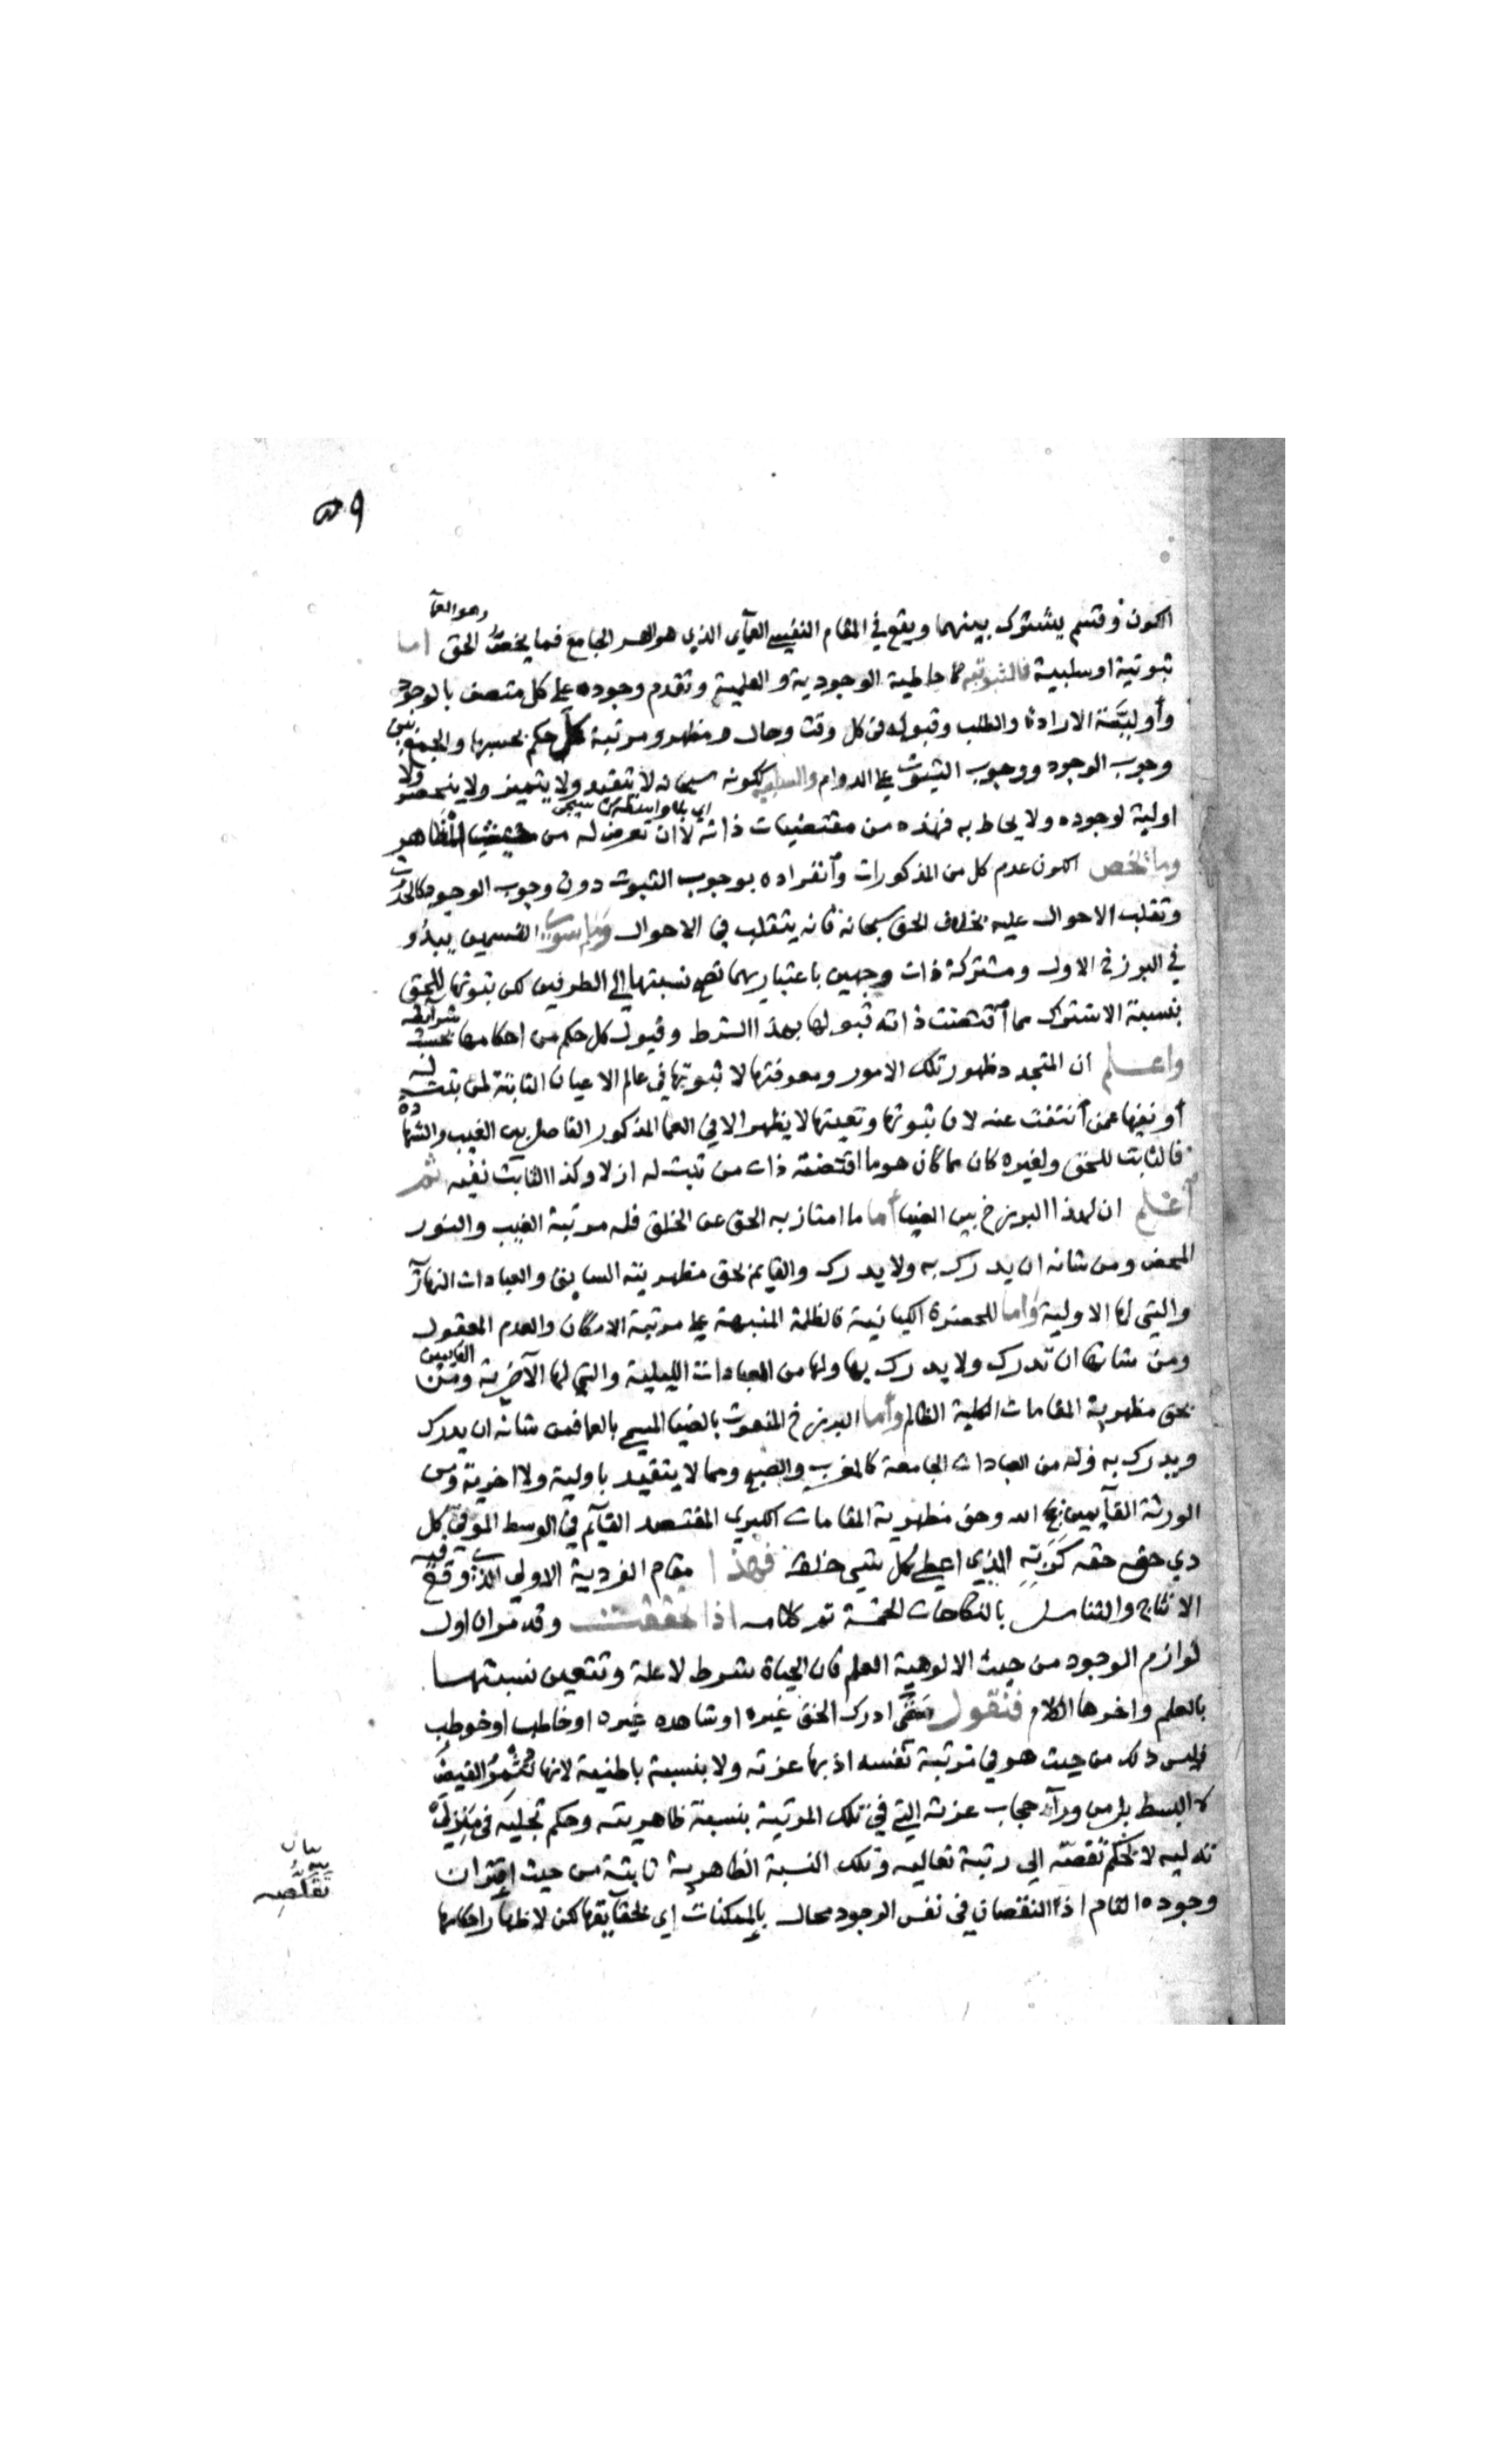 ٥٩
وهو العمآ
الكون وقسم يشترك بينهما ويقع في المقام النفيس العمآي الذي هو الجامع فما يخص الحق اما
ثبوتية او سلبية فالثبوتية كاحاطية الوجودية والعلمية وتقدم وجوده على كل متصف بالوجود
وأوليّة الارادة والطلب وقبوله في كل وقت وحال ومظهر ومرتبة كل حكم بحسبها والجمع بين
وجوب الوجود ووجوب الثبوت على الدوام والسلبية ككونه سبحانه لا يتقيد ولا يتميز ولا ينحصر ولا
اولية لوجوده ولا يحاط به فهذه من مقتضيات ذاته لا ان تعرض له من المظاهر
وما يخص الكون عدم كل من المذكورات وانفراده بوجوب الثبوت دون وجوب الوجود كالحدوث
وتقلب الاحوال عليه بخلاف الحق سبحانه فانه يتقلب في الاحوال القسمين يبدو
في البرزخ الاول ومشتركة ذات وجهين باعتبارهما تصح نسبتها الى الطرفين لكن ثبوتها للحق
بنسبة الاشتراك مما اقتضت ذاته قبولها بهذا الشرط وقبول كل حكم من احكامها بحسب شرايطه
واعلم ان المتجدد ظهور تلك الامور ومعرفتها لا ثبوتها في عالم الاعيان الثابتة لمن ثبتت له
أو نفيها عمن انتفت عنه لان ثبوتها وتعينها لا يظهر الا في العما المذكور الفاصل بين الغيب والشهادة
فالثابت للحق ولغيره كان ما كان هو ما اقتضته ذات من ثبت له ازلا وكذا الثابت نفيه ثم
أعلم ان لهذا البرزخ بين الضيا أما ما امتاز به الحق عن الخلق فله مرتبة الغيب والنور
المحض ومن شانه ان يدرك به ولا يدرك والقايم بحق مظهريته السابق والعبادات النهارية
والتي لها الاولية وأما للحضرة الكيانية فالظلمة المنبهة على مرتبة الامكان والعدم المعقول
ومن شانها ان تدرك ولا يدرك بها ولها من العبادات الليلية والتي لها الآخرية ومن القايمين
بحق مظهرية المقامات الكلية الظالم وأما البرزخ المنعوت بالضيا المسمى بالعما فمن شانه ان يدرك
ويدرك به وله من العبادات الجامعة كالمغرب والصبح ومما لا يتقيد باولية ولا اخرية ومن
الورثة القآيمين بحق الله وحق مظهرية المقامات الكبرى المقتصد القآيم في الوسط الموفي كل
ذي حق حقه كربّه الذي اعطى كل شي خلقه فهذا مقام الفردية الاولى الذي وقع فيه
الانتاج والتناسل بالنكاحات الخمسة تم كلامه اذا تحققت وقد مر ان اول
لوازم الوجود من حيث الالوهية العلم فان الحياة شرط لا علة وتتعين نسبتها
بالعلم واخرها الكلام فنقول متى ادرك الحق غيره او شاهده غيره او خاطب او خوطب
فليس ذلك من حيث هو في مرتبة نفسه اذ بها عزته ولا بنسبة باطنية لانها القبض
لا البسط بل من ورآء حجاب عزته التي في تلك المرتبة بنسبة ظاهريته وحكم تجليه في منزلة
تدليه لا لحكم نقصته الى رتبة تعاليه وتلك النسبة الظاهرية ثابتة من حيث اقتران
وجوده التام اذ النقصان في نفس الوجود محال بالممكنات اي بحقآيقها لكن لاظهار احكامها
بيان
نقلصه